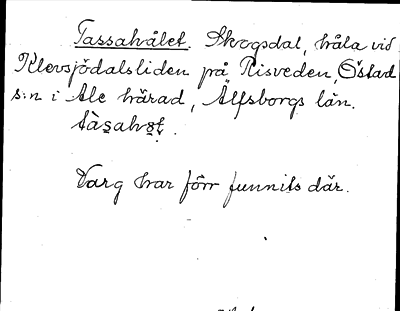 Tassahålet. Skogsdal, håla vid
Klevsjödalsliden på Risveden, Östad
s:n i Ale härad, Älfsborgs län.
Varg har förr funnits där.